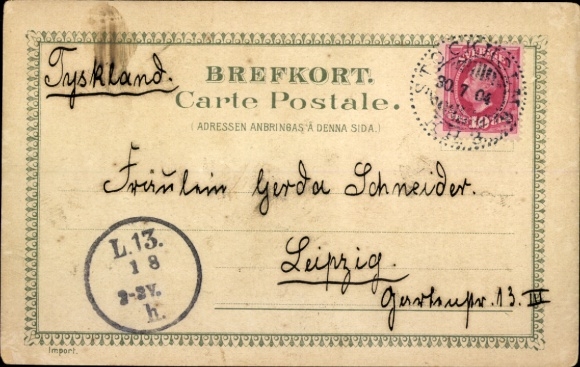 Tyskland.
BREFKORT.
Carte Postale.
(ADRESSEN ANBRINGAS Å DENNA SIDA.)
30.7.04
10
Fräulein Gerda Schneider.
Leipzig.
Gartenstr. 13. III
L.13.
1 8
V.
h.
Import.